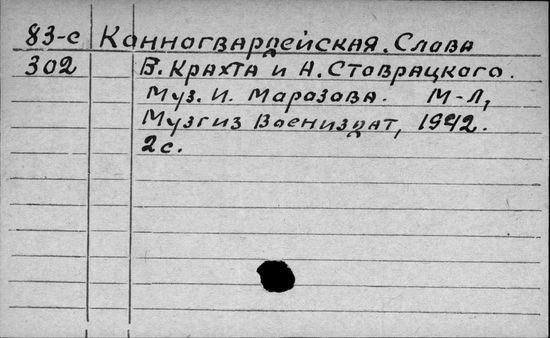 83-с Конногвардейская. Слова
302 В. Крахта и А. Стоврацкого.
Муз. И. Морозова. М-Л,
Музгиз Воениздат, 1942.
2с.